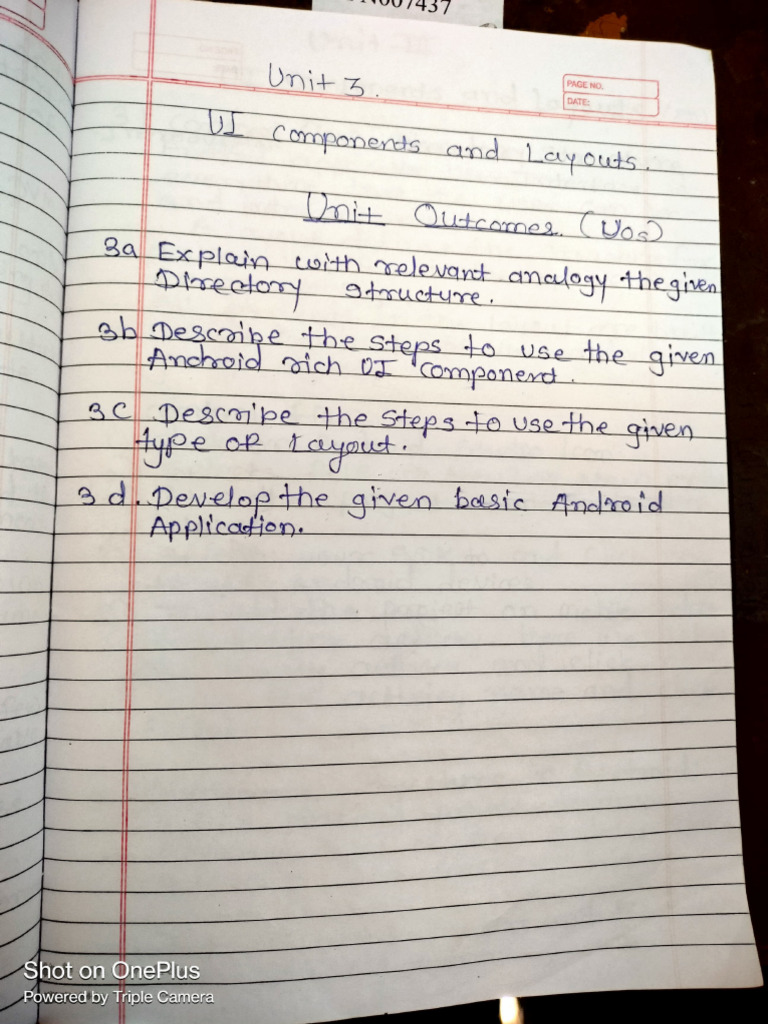 N007437
PAGE NO.
DATE:
Unit 3
UI components and Layouts.
Unit Outcomes (UOs)
3a Explain with relevant analogy the given
Directory structure.
3b Describe the steps to use the given
Android rich UI component.
3c Describe the steps to use the given
type of Layout.
3d. Develop the given basic Android
Application.
Shot on OnePlus
Powered by Triple Camera